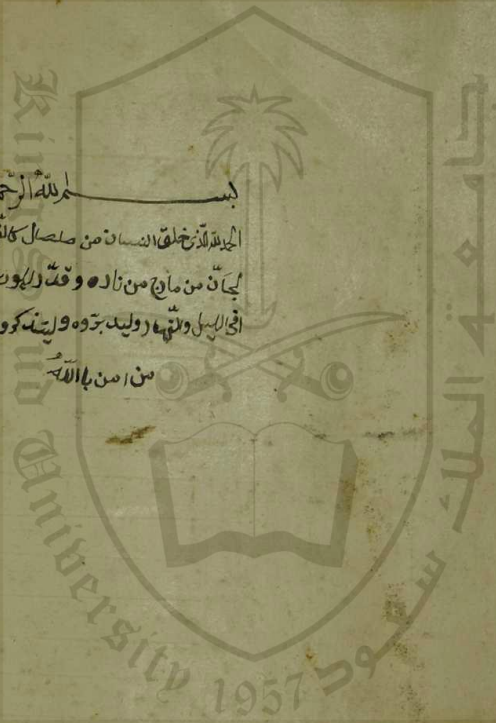 بسم لله الرحم
الحمد لله الذى خلق النسان من صلصال كالف
لجان من مارج من ناره وقدر
افى الليل ولنهار وليدبروه وليذكرو
من امن باالله
King Saud University
1957
جامعة الملك سعود